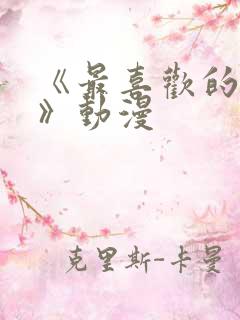 《最喜歡的
》動漫
克里斯-卡曼